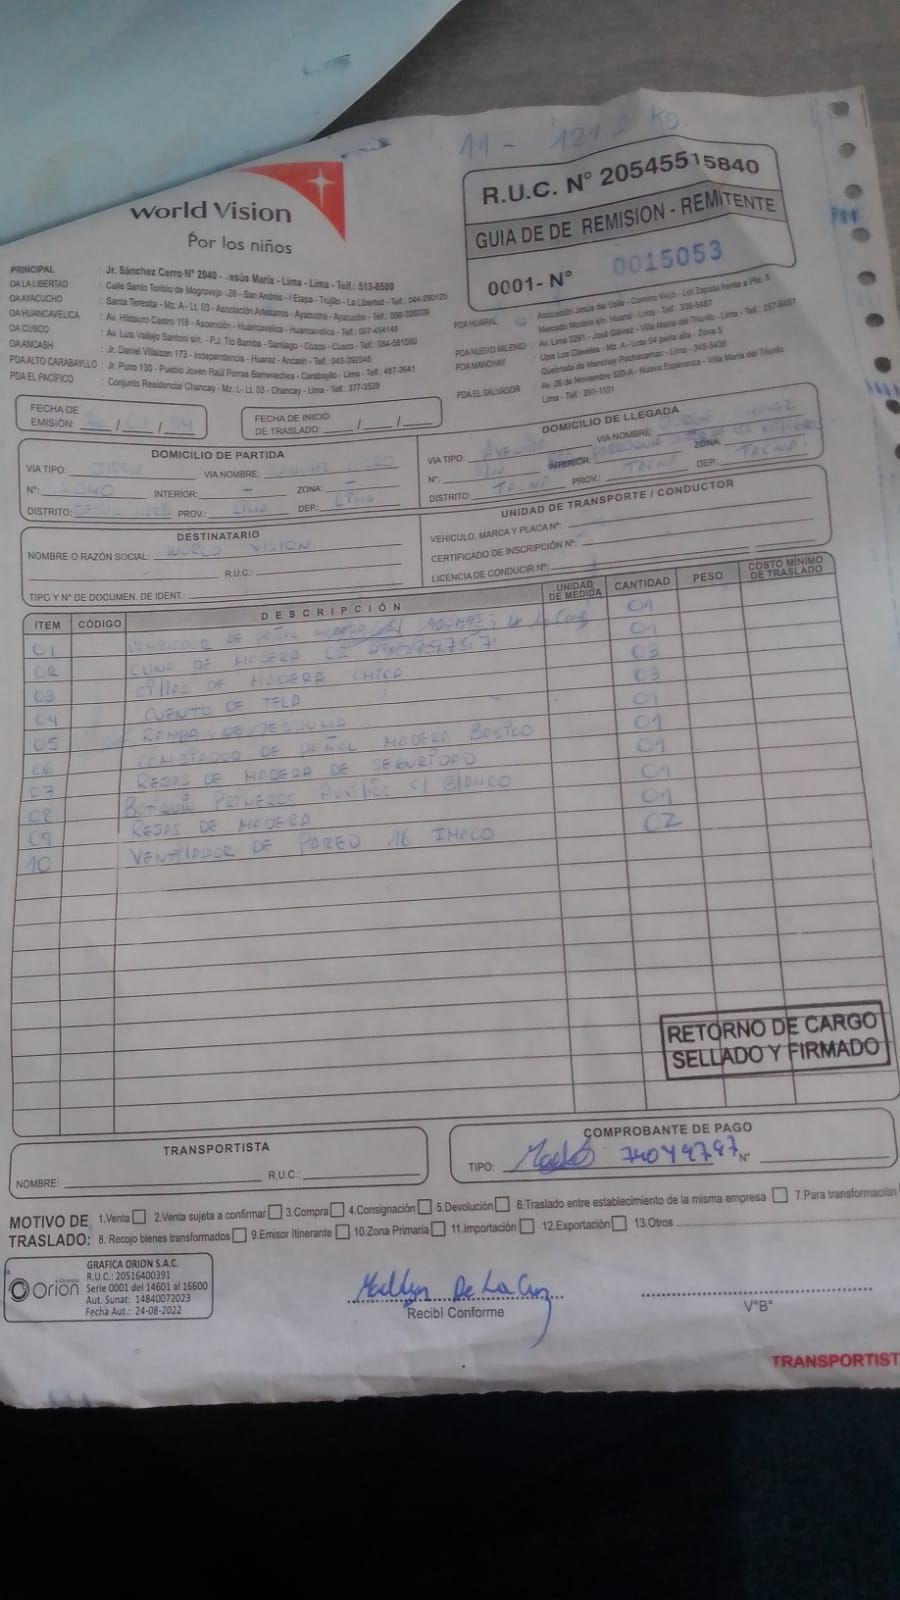 11 - 121.2 kg.
World Vision
Por los niños
R.U.C. N° 20545515840
GUIA DE DE REMISION - REMITENTE
0001- N° 0015053
PRINCIPAL : Jr. Sánchez Cerro N° 2040 - Jesús María - Lima - Lima - Telf.: 513-6500
OA LA LIBERTAD : Calle Santo Toribio de Mogrovejo -26 - San Andrés - I Etapa - Trujillo - La Libertad - Telf.: 044-290125
OA AYACUCHO : Santa Teresita - Mz. A - Lt. 03 - Asociación Artesanos - Ayacucho - Ayacucho - Telf.:
OA HUANCAVELICA : Av. Hildauro Castro 118 - Ascención - Huancavelica - Huancavelica - Telf.: 067-454148
OA CUSCO : Av. Luis Vallejo Santoni s/n. - P.J. Tío Bamba - Santiago - Cusco - Cusco - Telf.:
OA ANCASH : Jr. Daniel Villaizan 173 - Independencia - Huaraz - Ancash - Telf.: 043-392045
PDA ALTO CARABAYLLO : Jr. Puno 130 - Pueblo Joven Raúl Porras Barrenechea - Carabayllo - Lima - Telf.: 497-3641
PDA EL PACÍFICO : Conjunto Residencial Chancay - Mz. L - Lt. 03 - Chancay - Lima - Telf.: 377-3528
PDA HUARAL Asociación Jesús del Valle - Camino Viejo - Lot Zapata frente a Pta. 5
Mercado Modelo s/n. Huaral - Lima - Telf.: 339-5487
PDA NUEVO MILENIO Av. Lima 2261 - José Gálvez - Villa María del Triunfo - Lima - Telf.:
PDA MANCHAY Upis Los Claveles - Mz. A - Lote 04 parte alta - Zona 5
Quebrada de Manchay Pachacamac - Lima - 345-5438
PDA EL SALVADOR Av. 26 de Noviembre 520-A - Nueva Esperanza - Villa María del Triunfo
Lima - Telf.: 291-1101
FECHA DE
EMISIÓN: / /
FECHA DE INICIO
DE TRASLADO: / /
DOMICILIO DE PARTIDA
VIA TIPO: JIRON VIA NOMBRE: SANCHEZ CERRO
N°: 2040 INTERIOR: - ZONA: -
DISTRITO: JESUS MARIA PROV.: LIMA DEP.: LIMA
DOMICILIO DE LLEGADA
VIA TIPO: AVENIDA VIA NOMBRE: JORGE
N°: S/N INTERIOR: ZONA:
DISTRITO: TACNA PROV.: TACNA DEP.: TACNA
DESTINATARIO
NOMBRE O RAZÓN SOCIAL: WORLD VISION
R.U.C.:
TIPO Y N° DE DOCUMEN. DE IDENT.:
UNIDAD DE TRANSPORTE / CONDUCTOR
VEHICULO, MARCA Y PLACA N°:
CERTIFICADO DE INSCRIPCIÓN N°:
LICENCIA DE CONDUCIR N°:
ITEM CÓDIGO DESCRIPCIÓN UNIDAD DE MEDIDA CANTIDAD PESO COSTO MÍNIMO DE TRASLADO
01 CAMBIADOR DE PAÑAL MADERA De La Cruz 01
02 CUNA DE MADERA 01
03 SILLAS DE MADERA CHICA 03
04 CUENTO DE TELA 03
05 RAMPA 01
06 CAMBIADOR DE PAÑAL MADERA BASICO 01
07 REJAS DE MADERA DE SEGURIDAD 01
08 BOTIQUÍN PRIMEROS AUXILIOS C/ BLANCO 01
09 REJAS DE MADERA 01
10 VENTILADOR DE PARED 16 IMACO 02
RETORNO DE CARGO
SELLADO Y FIRMADO
TRANSPORTISTA
NOMBRE: R.U.C.:
COMPROBANTE DE PAGO
TIPO: 74049797 N°
MOTIVO DE TRASLADO: 1.Venta 2.Venta sujeta a confirmar 3.Compra 4.Consignación 5.Devolución 6.Traslado entre establecimiento de la misma empresa 7.Para transformación
8. Recojo bienes transformados 9.Emisor Itinerante 10.Zona Primaria 11.Importación 12.Exportación 13.Otros
Orión
GRAFICA ORION S.A.C.
R.U.C.: 20516400391
Serie 0001 del 14601 al 16600
Aut. Sunat: 14840072023
Fecha Aut.: 24-08-2022
De La Cruz
Recibí Conforme
V°B°
TRANSPORTIST